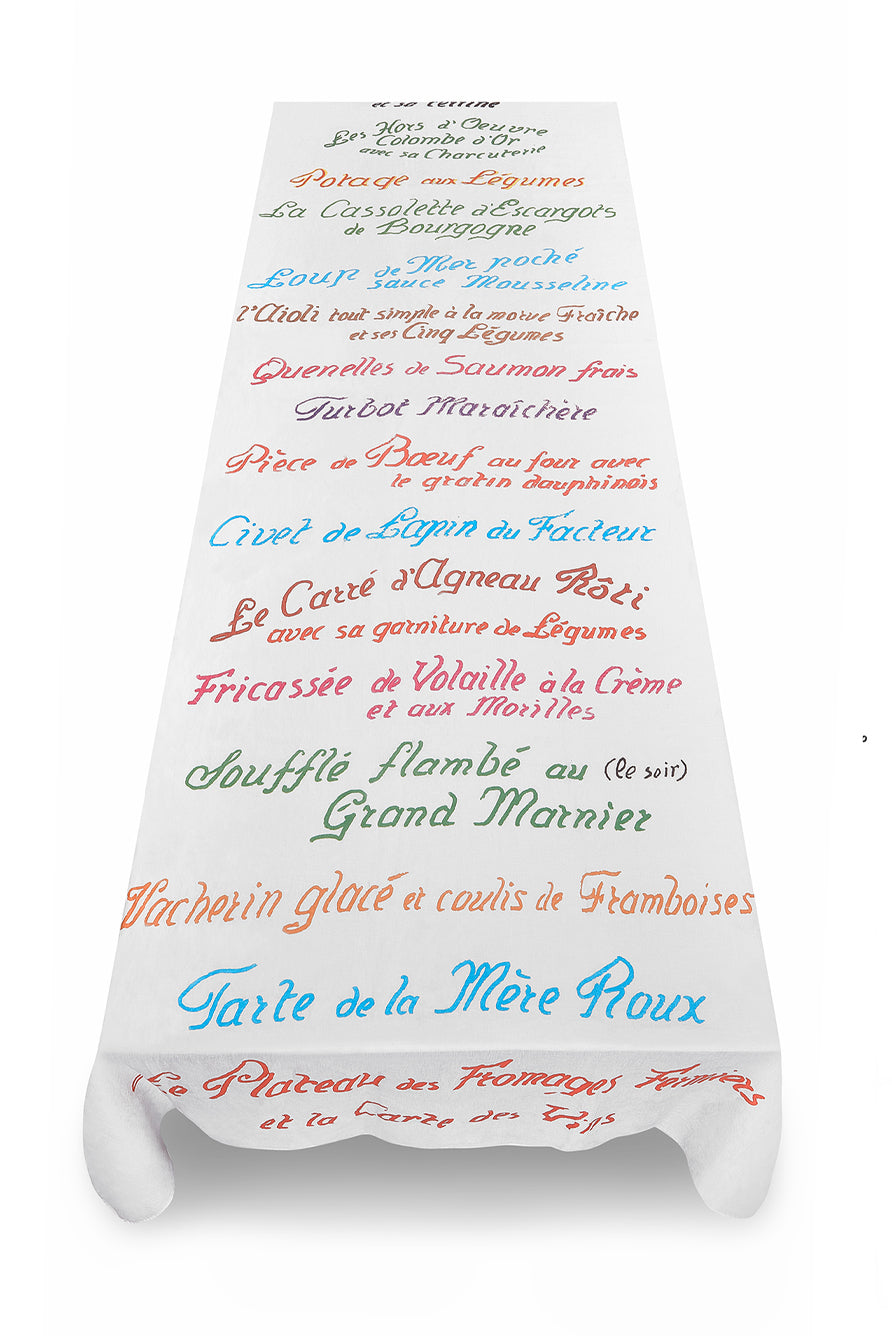 et sa terrine
Les Hors d'Oeuvre
Colombe d'Or
avec sa Charcuterie
Potage aux Légumes
La Cassolette d'Escargots
de Bourgogne
Loup de Mer poché
sauce Mousseline
l'Aioli tout simple à la morue Fraîche
et ses Cinq Légumes
Quenelles de Saumon frais
Turbot Maraîchère
Pièce de Bœuf au four avec
le gratin dauphinois
Civet de Lapin du Facteur
Le Carré d'Agneau Rôti
avec sa garniture de Légumes
Fricassée de Volaille à la Crème
et aux Morilles
Soufflé flambé au (le soir)
Grand Marnier
Vacherin glacé et coulis de Framboises
Tarte de la Mère Roux
Le Plateau des Fromages Fermiers
et la Carte des